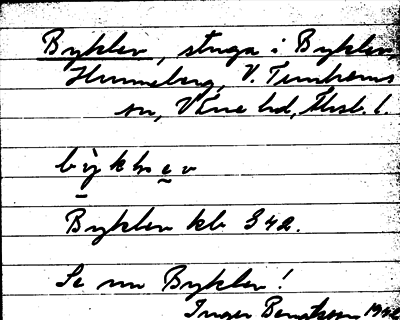 Byklev, stuga i Byklev,
Hunneberg, V. Tunhems
sn, Väne hd, Älvsb. l.
Byklev kb 342.
Se nu Byklev!
Inger Bengtsson 1942